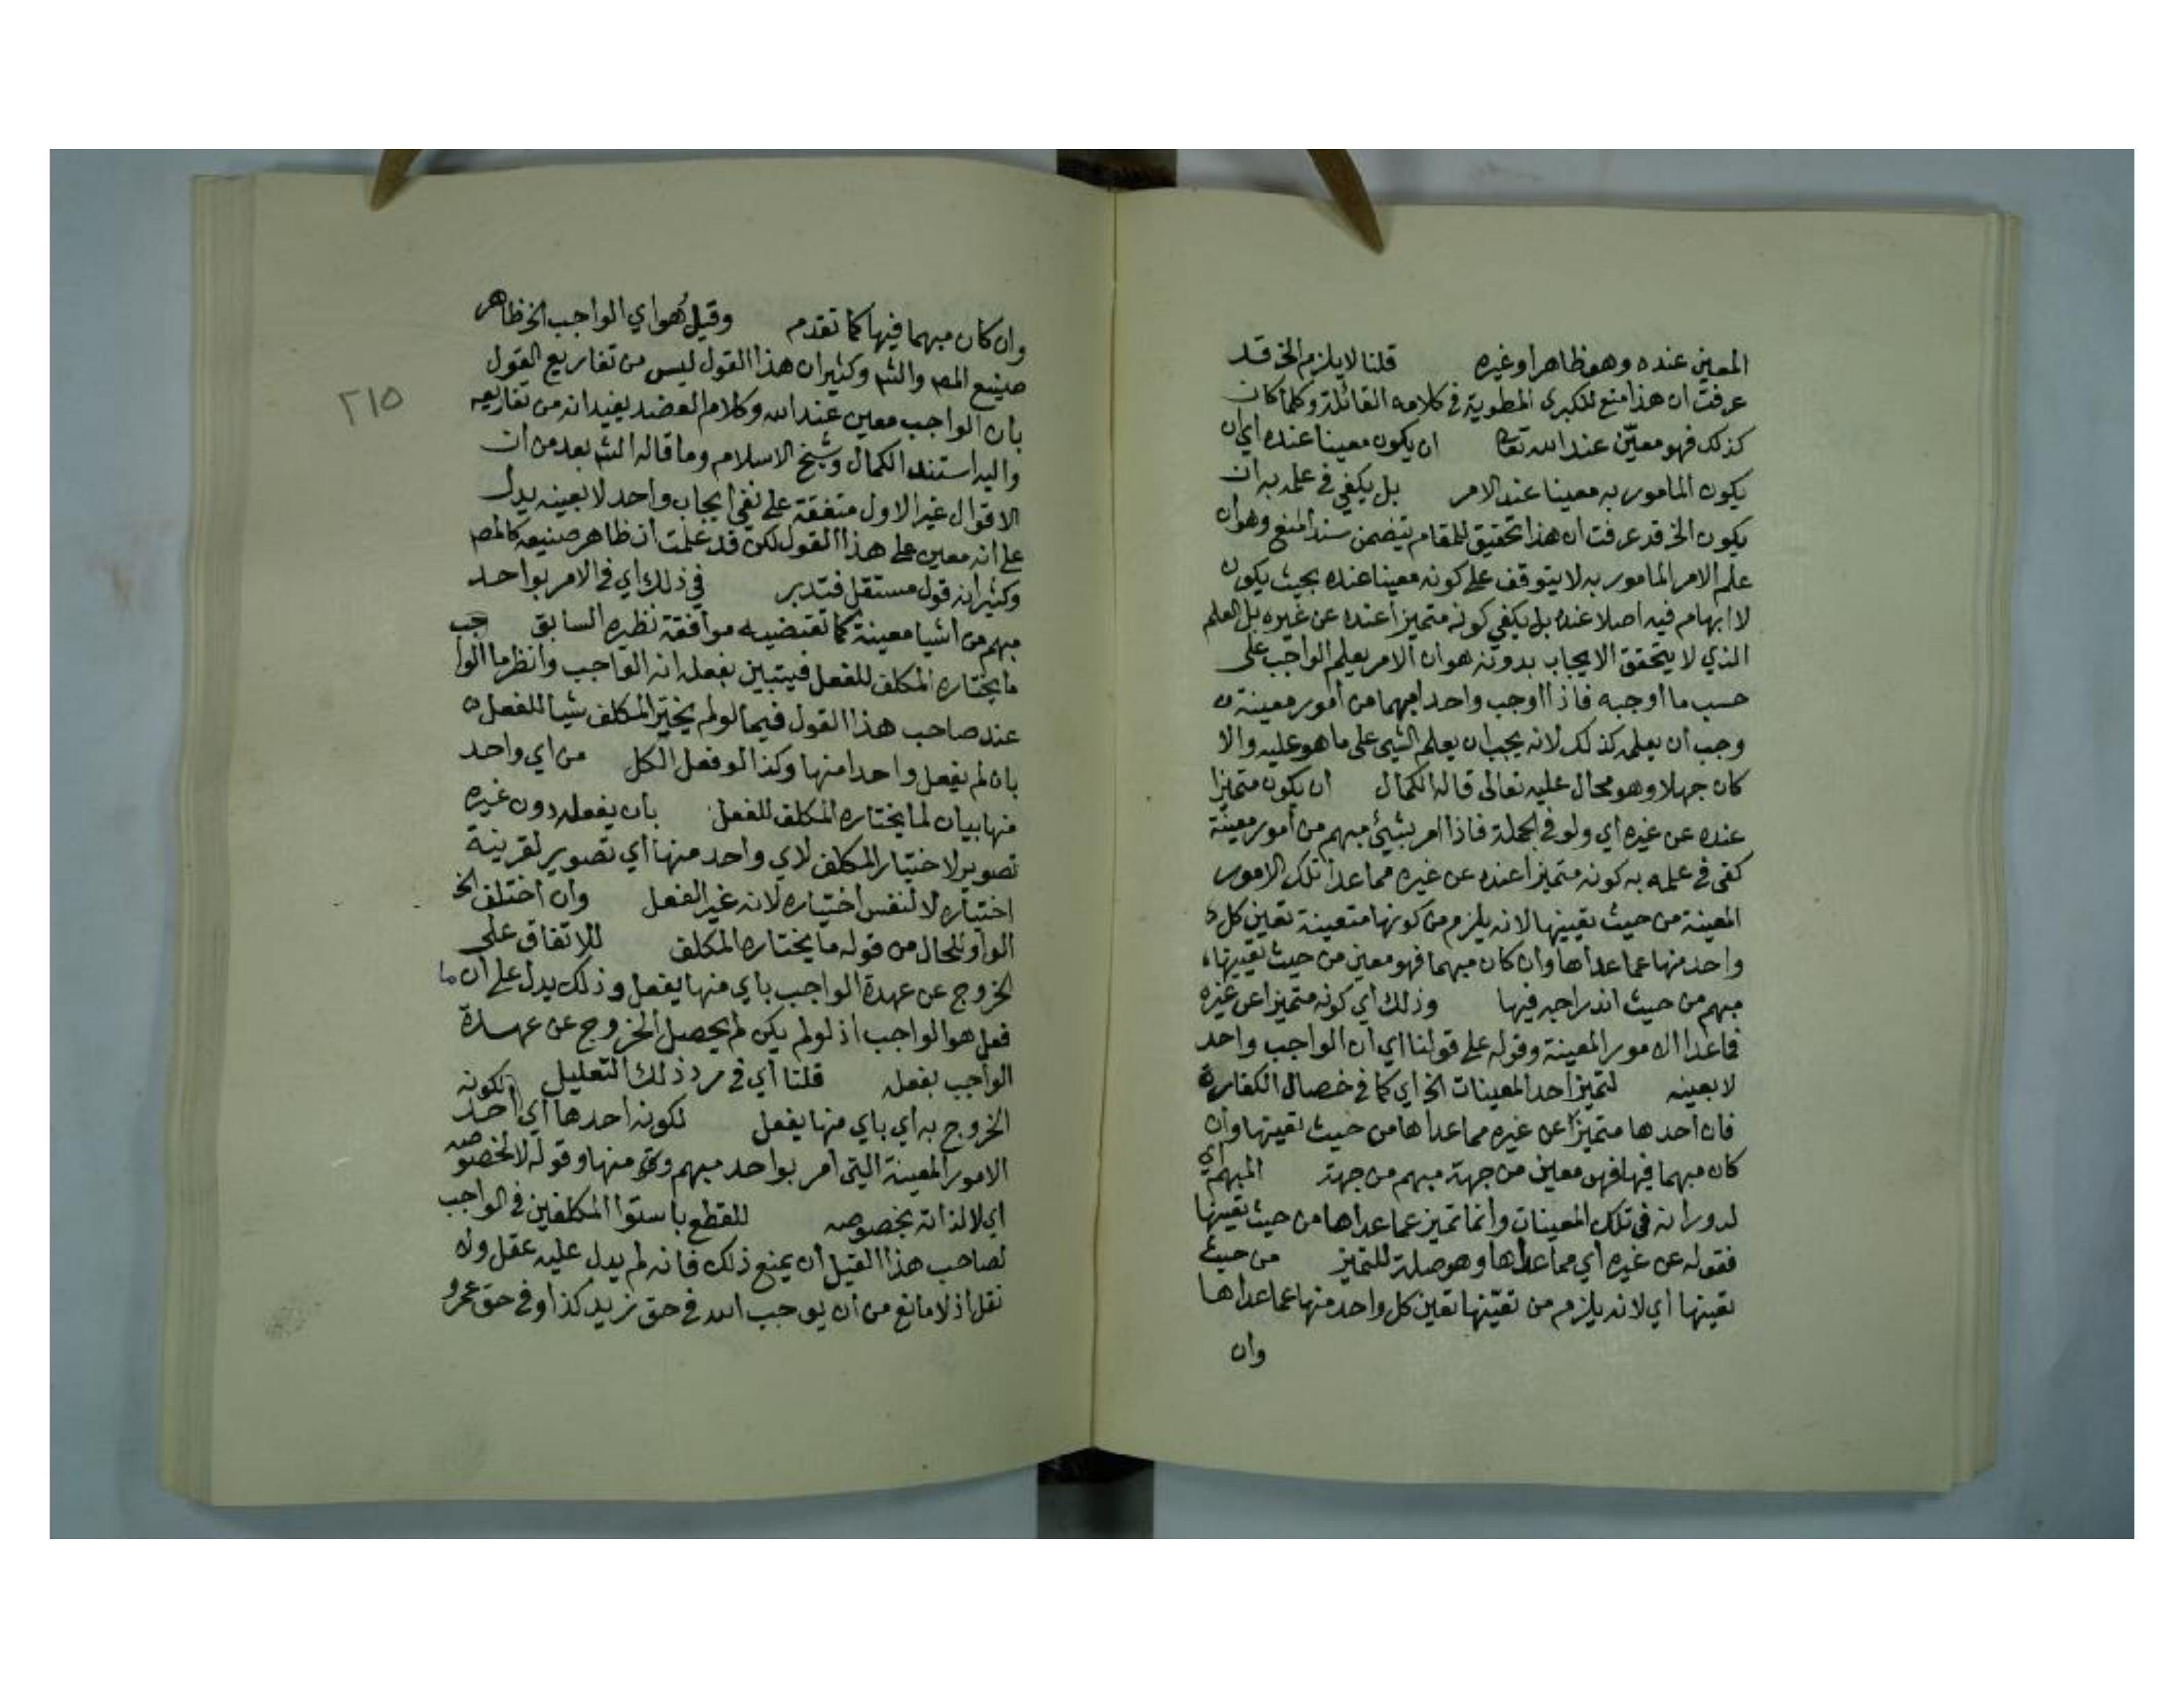 المعين عنده وهو ظاهر او غيره قلنا لا يلزم الخ قد
عرفت ان هذا منع للكبرى المطوية في كلامه القائلة وكلما كان
كذلك فهو معيّن عند الله تعا ان يكون معينا عنده اي ان
يكون المامور به معينا عند الامر بل يكفي في علمه به ان
يكون الخ قد عرفت ان هذا تحقيق للمقام يتضمن سند المنع وهو ان
علم الامر المامور به لا يتوقف على كونه معينا عنده بحيث يكون
لا ابهام فيه اصلا عنده بل يكفي كونه متميزا عنده عن غيره بل العلم
الذي لا يتحقق الايجاب بدونه هو ان الامر يعلم الواجب على
حسب ما اوجبه فاذا اوجب واحدا مبهما من أمور معينة
وجب أن يعلمه كذلك لانه يجب ان يعلم الشيئ على ما هو عليه والا
كان جهلا وهو محال عليه تعالى قاله الكمال ان يكون متميزا
عنده عن غيره أي ولو في الجملة فاذا امر بشيئ مبهم من أمور معينة
كفى في علمه به كونه متميزا عنده عن غيره مما عدا تلك الامور
المعينة من حيث تعيينها لانه يلزم من كونها متعينة تعين كل
واحد منها عما عداها وان كان مبهما فهو معين من حيث تعيينها
مبهم من حيث اندراجه فيها وذلك أي كونه متميزا عن غيره
مما عدا الامور المعينة وقوله على قولنا اي ان الواجب واحد
لا بعينه لتميز احد المعينات الخ اي كما في خصال الكفارة
فان أحدها متميز عن غيره مما عداها من حيث تعينها وان
كان مبهما فيها فهو معين من جهة مبهم من جهة المبهمة أي
لدورانه في تلك المعينات وانما تميز عما عداها من حيث تعينها
فقوله عن غيره أي مما عداها وهو صلة للتميز من حيث
تعينها أي لانه يلزم من تعيّنها تعين كل واحد منها عما عداها
وان
وان كان مبهما فيها كما تقدم وقيل هو اي الواجب الخ ظاهر
صنيع المص والشم وكثير ان هذا القول ليس من تفاريع القول
بان الواجب معين عند الله وكلام العضد يفيد انه من تفاريعه
واليه استند الكمال وشيخ الاسلام وما قاله الشم بعد من ان
الاقوال غير الاول متفقة على نفي ايجاب واحد لا بعينه يدل
على انه معين على هذا القول لكن قد علمت ان ظاهر صنيعه كالمص
وكثير انه قول مستقل فتدبر في ذلك اي في الامر بواحد
مبهم من اشيا معينة كما تقتضيه موافقة نظيره السابق
ما يختاره المكلف للفعل فيتبين بفعله انه الواجب وانظر ما الواجب
عند صاحب هذا القول فيما لو لم يختر المكلف شيا للفعل
بان لم يفعل واحدا منها وكذا لو فعل الكل من اي واحد
منها بيان لما يختاره المكلف للفعل بان يفعله دون غيره
تصوير لاختيار المكلف لاي واحد منها أي تصوير لقرينة
اختياره لا لنفس اختياره لانه غير الفعل وان اختلف الخ
الواو للحال من قوله ما يختاره المكلف للاتفاق على
الخروج عن عهدة الواجب باي منها يفعل وذلك يدل على ان ما
فعل هو الواجب اذ لو لم يكن لم يحصل الخروج عن عهدة
الواجب بفعله قلنا أي في رد ذلك التعليل ولكونه
الخروج به أي باي منها يفعل لكونه احدها أي احد
الامور المعينة التي امر بواحد مبهم منها وقوله لا لخصوصه
اي لا لذاته بخصوصه للقطع باستوا المكلفين في الواجب
لصاحب هذا القيل أن يمنع ذلك فانه لم يدل عليه عقل ولا
نقل اذ لا مانع من أن يوجب الله في حق زيد كذا وفي حق عمرو
٢١٥